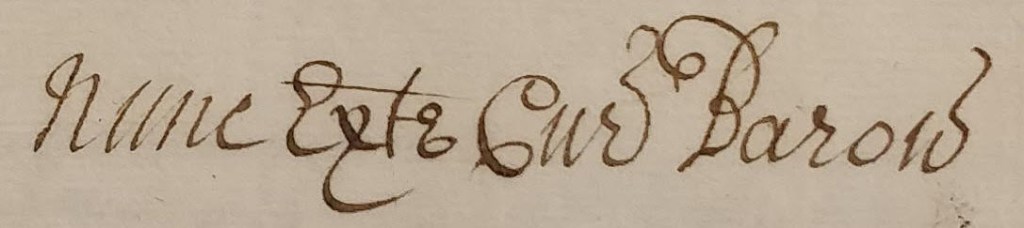 Nunc Exte Cur Baron